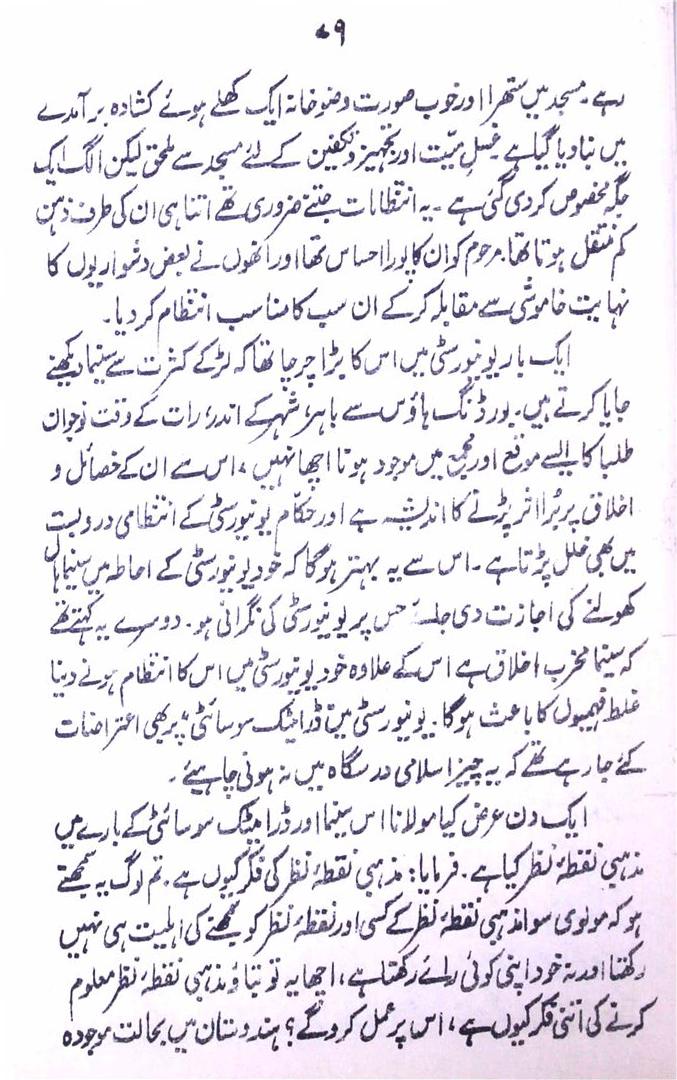 ۷۹
ہے۔ مسجد میں ستھرا اور خوب صورت وضو خانہ ایک کھلے ہوئے کشادہ برآمدے
میں بنا دیا گیا ہے۔ غسلِ میّت اور تجہیز و تکفین کے لئے مسجد سے ملحق لیکن الگ ایک
جگہ مخصوص کر دی گئی ہے۔ یہ انتظامات جتنے ضروری تھے اتنا ہی ان کی طرف ذہن
کم منتقل ہوتا تھا۔ مرحوم کو ان کا پورا احساس تھا اور انھوں نے بعض دشواریوں کا
نہایت خاموشی سے مقابلہ کر کے ان سب کا مناسب انتظام کر دیا۔
ایک بار یونیورسٹی میں اس کا بڑا چرچا تھا کہ لڑکے کثرت سے سنیما دیکھنے
جایا کرتے ہیں۔ بورڈنگ ہاؤس سے باہر، شہر کے اندر، رات کے وقت نوجوان
طلبا کا ایسے موقع اور مجمع میں موجود ہونا اچھا نہیں، اس سے ان کے خصائل و
اخلاق پر بُرا اثر پڑنے کا اندیشہ ہے اور حکّام یونیورسٹی کے انتظامی دروبست
میں بھی خلل پڑتا ہے۔ اس سے یہ بہتر ہوگا کہ خود یونیورسٹی کے احاطہ میں سنیما ہال
کھولنے کی اجازت دی جائے جس پر یونیورسٹی کی نگرانی ہو۔ دوسرے یہ کہتے تھے
کہ سینما مخرب اخلاق ہے اس کے علاوہ خود یونیورسٹی میں اس کا انتظام ہونے دینا
غلط فہمیوں کا باعث ہوگا۔ یونیورسٹی میں ڈرامیٹک سوسائٹی پر بھی اعتراضات
کئے جا رہے تھے کہ یہ چیز اسلامی درسگاہ میں نہ ہونی چاہیئے۔
ایک دن عرض کیا مولانا اس سینما اور ڈرامیٹک سوسائٹی کے بارے میں
مذہبی نقطۂ نظر کیا ہے۔ فرمایا: مذہبی نقطۂ نظر کی فکر کیوں ہے۔ تم لوگ یہ سمجھتے
ہو کہ مولوی سوا مذہبی نقطۂ نظر کے کسی اور نقطۂ نظر کو سمجھنے کی اہلیت ہی نہیں
رکھتا اور نہ خود اپنی کوئی رائے رکھتا ہے، اچھا یہ تو بتاؤ مذہبی نقطۂ نظر معلوم
کرنے کی اتنی فکر کیوں ہے، اس پر عمل کرو گے؟ ہندوستان میں بحالت موجودہ